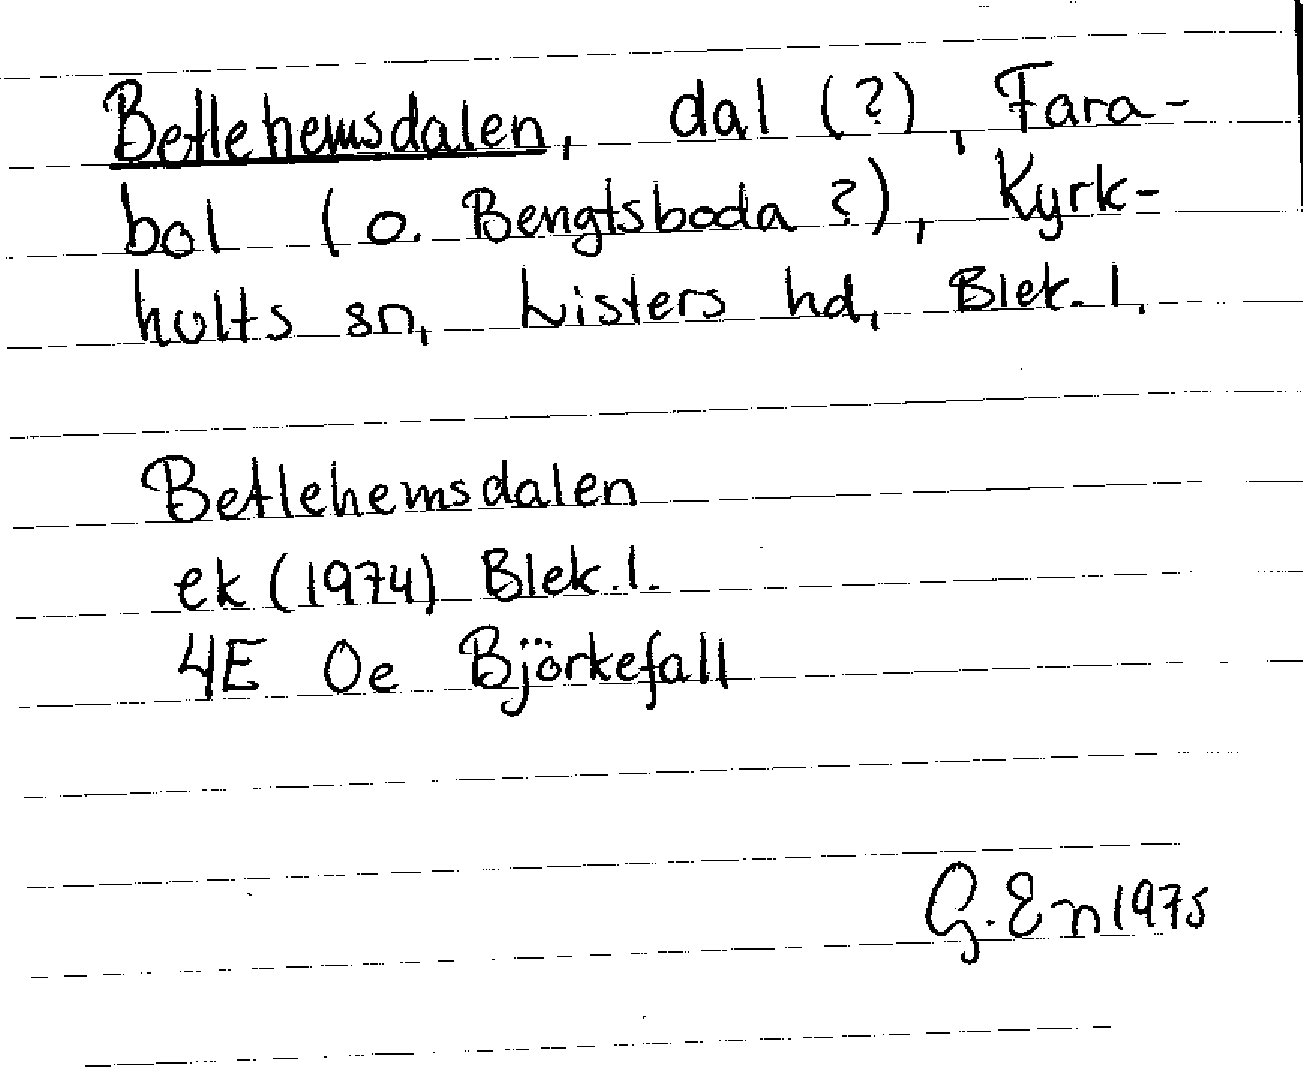 Betlehemsdalen, dal (?), Fara-
bol (o. Bengtsboda ?), Kyrk-
hults sn, Listers hd, Blek. l.
Betlehemsdalen
ek (1974) Blek. l.
4E 0e Björkefall
G. En 1975